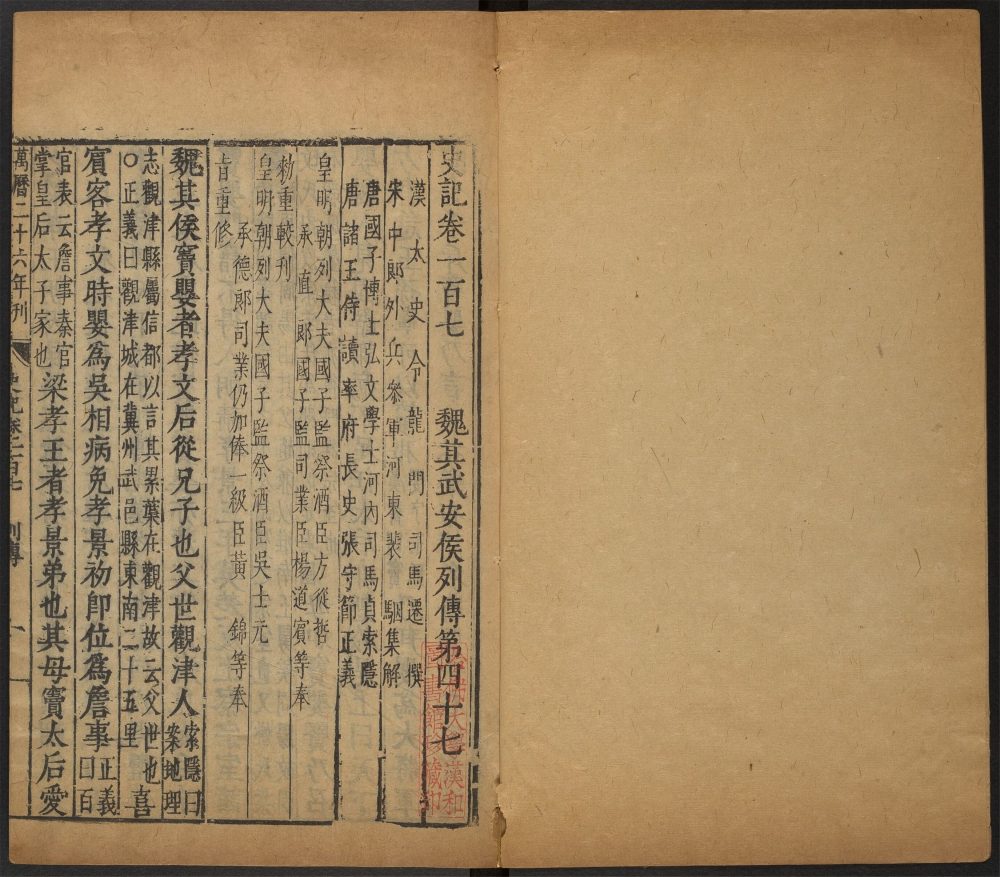 史記卷一百七　魏其武安侯列傳第四十七
漢太史令龍門司馬遷撰
宋中郎外兵參軍河東裴駰集解
唐國子博士弘文學士河內司馬貞索隱
唐諸王侍讀率府長史張守節正義
皇明朝列大夫國子監祭酒臣方從哲
承直郎國子監司業臣楊道賓等奉
勑重較刊
皇明朝列大夫國子監祭酒臣吳士元
承德郎司業仍加俸一級臣黃錦等奉
旨重修
魏其侯竇嬰者孝文后從兄子也父世觀津人索隱曰案地理
志觀津縣屬信都以言其累葉在觀津故云父世也
○正義曰觀津城在冀州武邑縣東南二十五里喜
賓客孝文時嬰爲吳相病免孝景初即位爲詹事正義曰百
官表云詹事秦官
掌皇后太子家也梁孝王者孝景弟也其母竇太后愛
萬曆二十六年刊
史記卷一百七
列傳
一
漢和
圖書館珍藏印